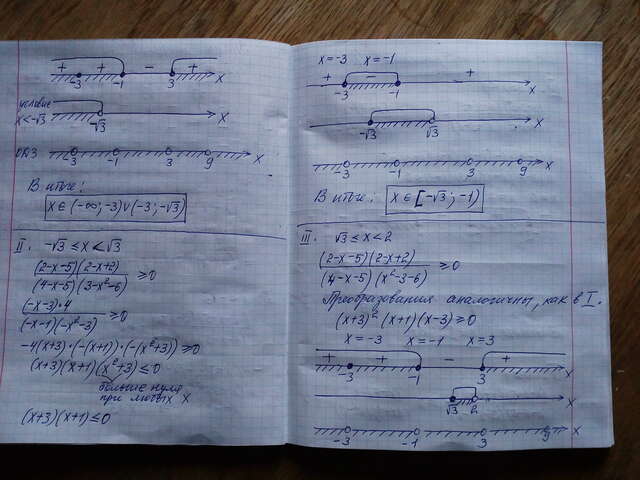 + + - +
-3 -1 3 x
условие
x<-√3
-√3 x
ОДЗ
-3 -1 3 9 x
В итоге:
x ∈ (-∞; -3) ∪ (-3; -√3)
II. -√3 ≤ x < √3
(2-x-5)(2-x+2)
(4-x-5)(3-x²-6) ≥0
(-x-3)·4
(-x-1)(-x²-3) ≥0
-4(x+3)·(-(x+1))·(-(x²+3)) ≥0
(x+3)(x+1)(x²+3) ≤0
больше нуля
при любых x
(x+3)(x+1) ≤0
x=-3 x=-1
+ - +
-3 -1 x
-√3 √3 x
-3 -1 3 9 x
В итоге: x ∈ [-√3; -1)
III. √3 ≤ x < 2
(2-x-5)(2-x+2)
(4-x-5)(x²-3-6) ≥0
Преобразования аналогичны, как в I.
(x+3)²(x+1)(x-3) ≥0
x=-3 x=-1 x=3
+ + - +
-3 -1 3 x
√3 2 x
-3 -1 3 9 x